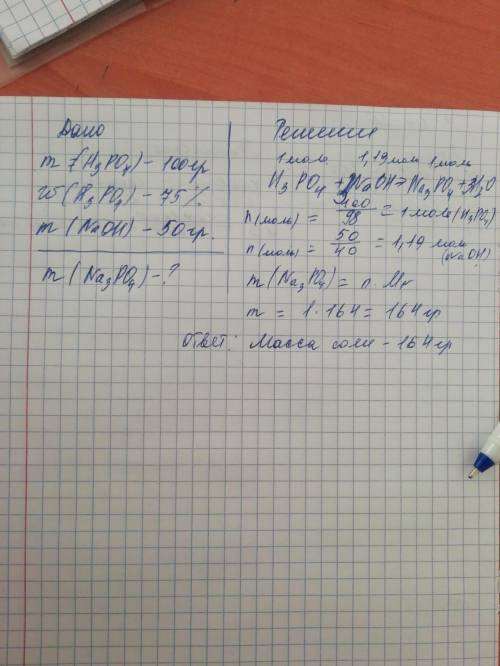 Дано
m (H₃PO₄) - 100гр
w (H₃PO₄) - 75%
m (NaOH) - 50гр.
m (Na₃PO₄) - ?
Решение
1моль 1,19моль 1моль
H₃PO₄ + 3NaOH → Na₃PO₄ + 3H₂O
n(моль) = 100/98 = 1моль (H₃PO₄)
n(моль) = 50/40 = 1,19 моль (NaOH)
m (Na₃PO₄) = n · Mr
m = 1 · 164 = 164гр
Ответ: Масса соли - 164гр